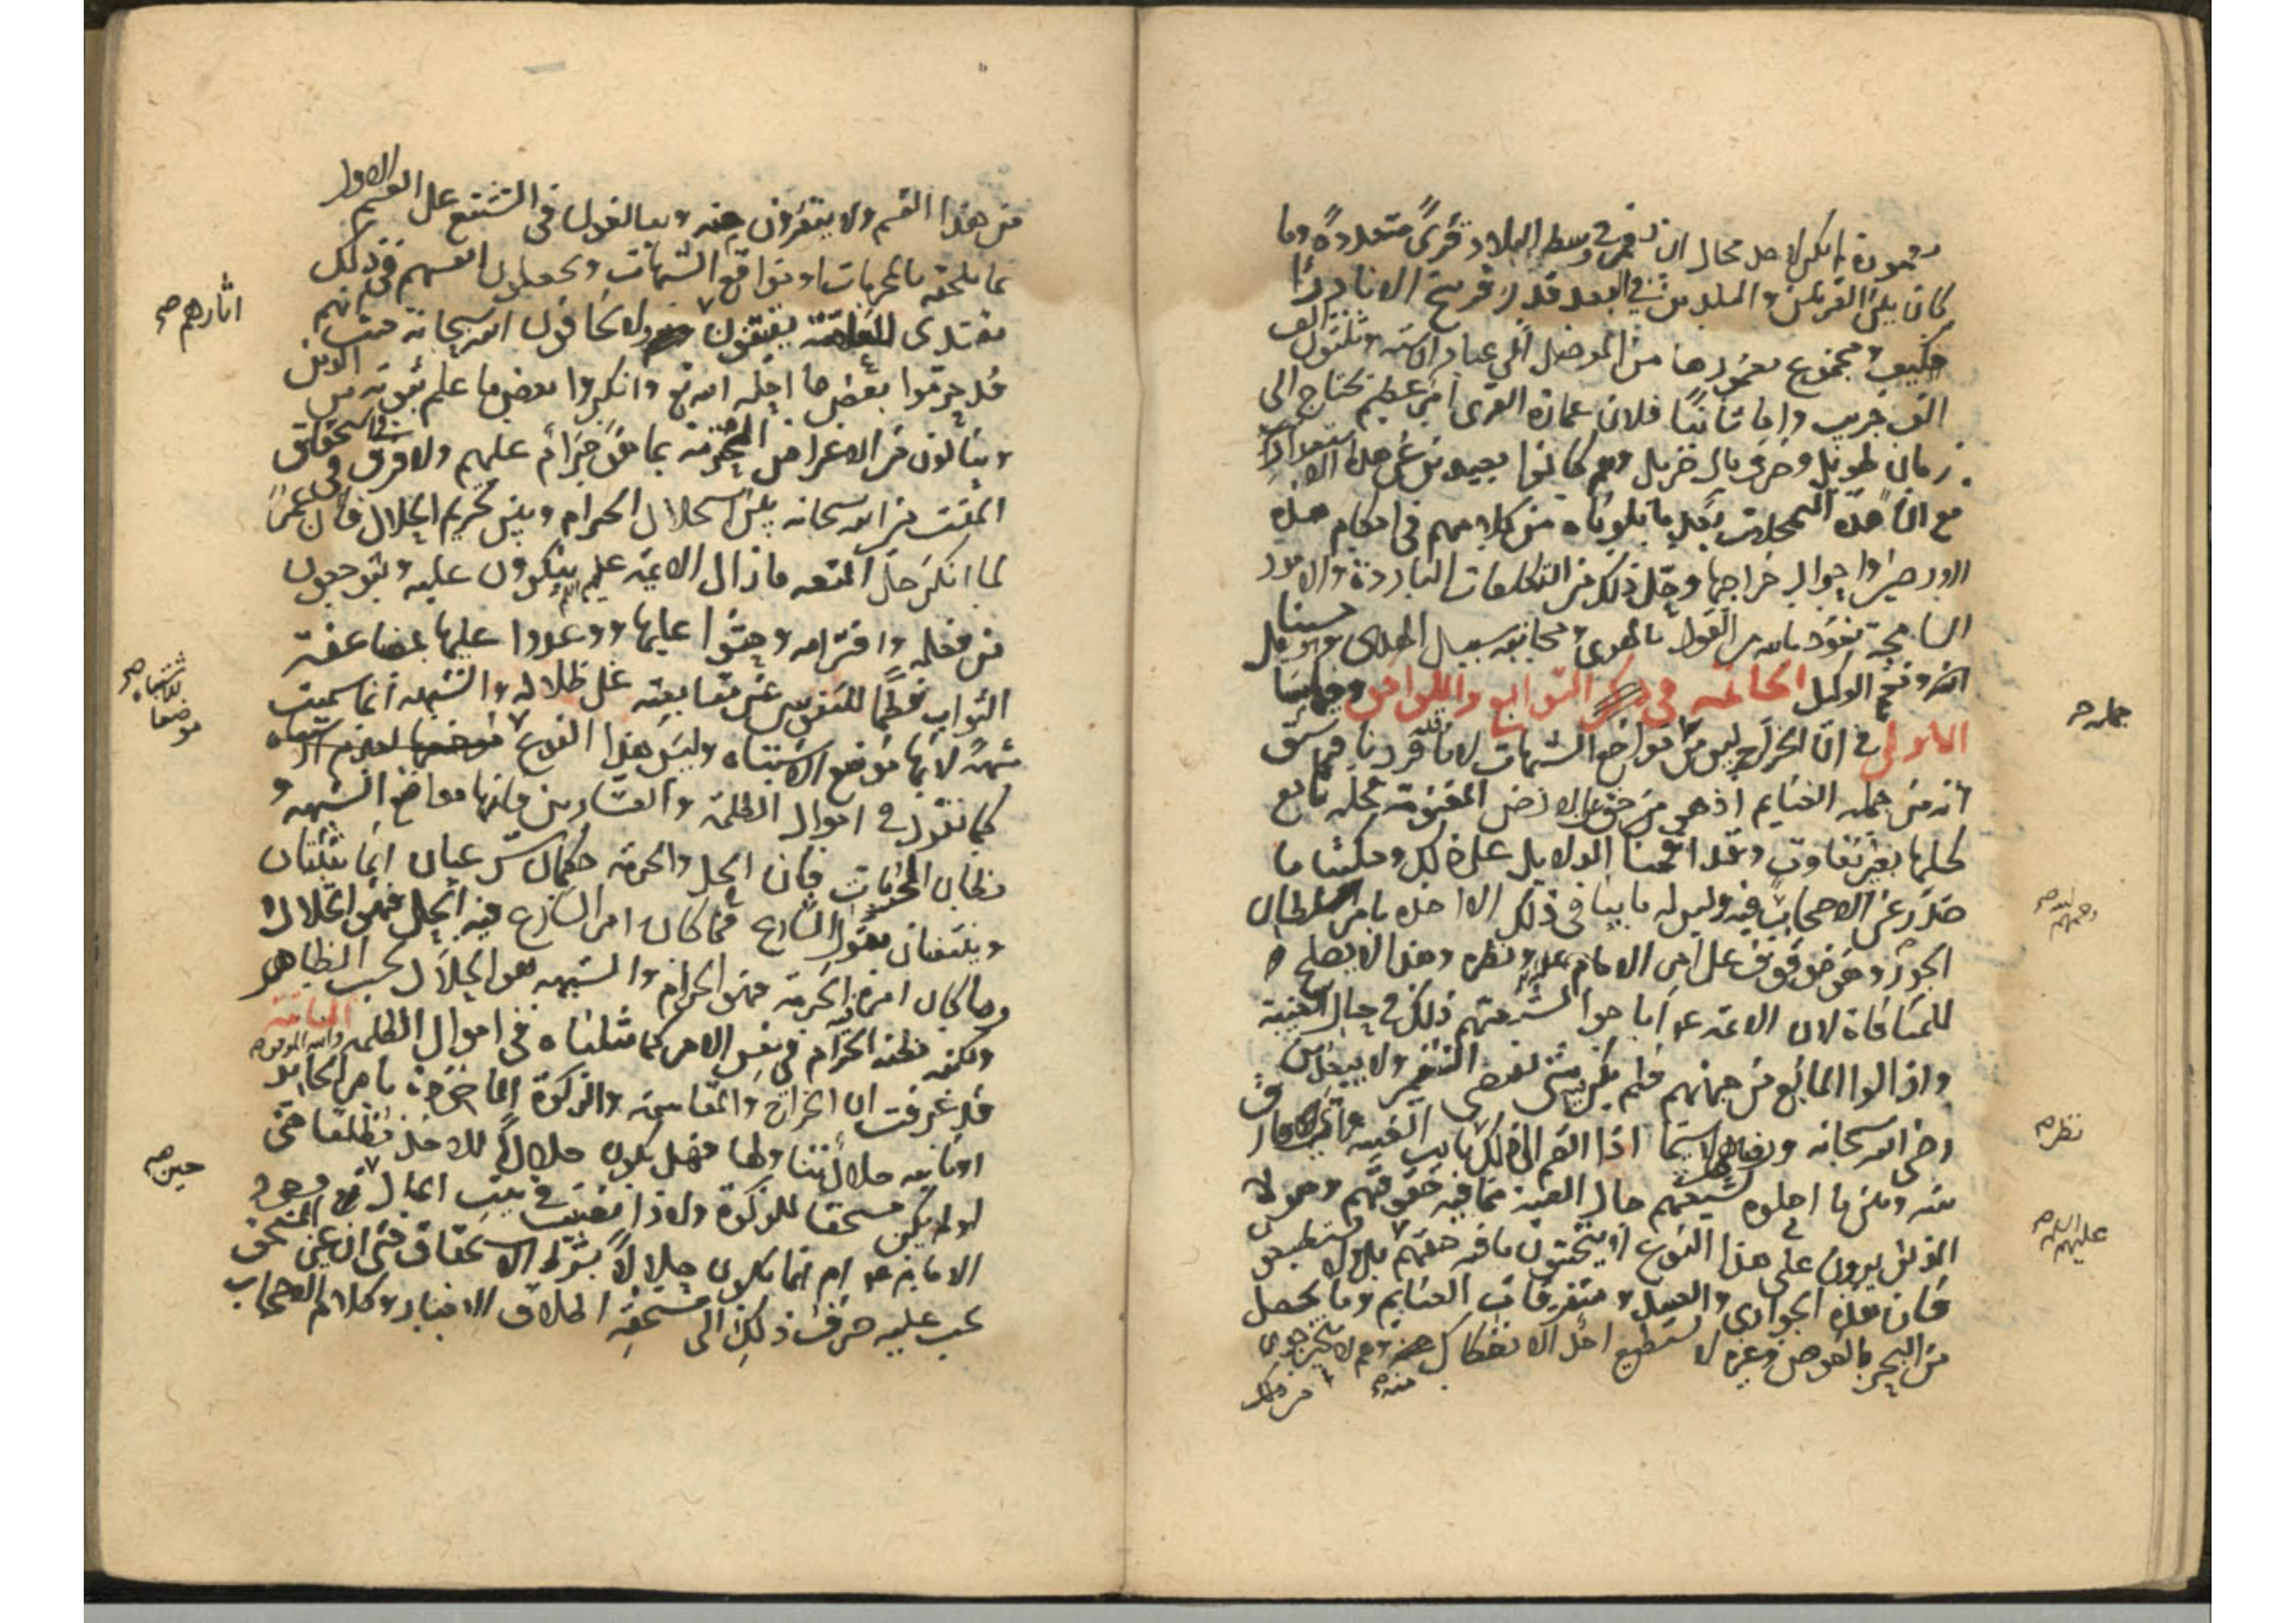 معمورة لم يكن لاحد مجال ان يفرض وسط البلاد قرىً متعددةً وما
كان بين القريتين والبلدين في البعد قدر فرسخ الا نادرًا
فكيف ومجموع معمورها من الموصل الى عبادان ستة وثلثون الف
الف جريب واما ثانيًا فلان عمارة القرى امر عظيم يحتاج الى
زمان طويل وصرف مال جزيل وهم كانوا بعيدين عن هذه الاستعدادات
مع ان هذه التمحلات بعد ما تلوناه من كلامهم في احكام هذه
الارضين واحوال خراجها وحل ذلك من التكلفات الباردة والامور
السامجة نعوذ بالله من القول بالهوى ومجانبة سبيل الهدى وهو حسبنا
الله ونعم الوكيل الخاتمة في ذكر التوابع واللواحق وفيها مسائل
الاولى في ان الخراج ليس من مواضع الشبهات لانا قد قررنا فيما سبق
انه من جملة الغنايم اذ هو من حق الارض المغنومة فحله تابع
لحلها بغير تفاوت وقد اقمنا الدلايل على ذلك وحكينا ما
صدر عن الاصحاب فيه وليس له ما ينافي ذلك الا اخذه بامر سلطان
الجور وهو موقوف على امر الامام عليه السلام ونظره وهذا لا يصلح
للمنافاة لان الائمة ع اباحوا لشيعتهم ذلك في حال الغيبة
واذ زال المانع من جهتهم فلم يكن شيء يقتضي التنفير ولا يبخل من
رضى الله سبحانه ورضاهم لاسيما اذا انضم الى ذلك نايب الغيبة واي فرق
بينه وبين ما احلوه لشيعتهم حال الغيبة مما فيه حقوقهم وهؤلاء
الذين يزرون على هذا النوع لا يتجنبون ما فيه حقهم بل ولا يستطيعون
فان هذه الجواري والعبيد ومتفرقات الغنايم وما يحصل
من البحر بالغوص وغيره لا يستطيع احد الانفكاك منه وهم لا يتحرجون
من ذلك
جملة ح
رحمهم الله صح
نظر صح
عليهم السلام صح
منه صح
من هذا القسم ولا يتفرون عنه ويبالغون في التشنيع على القسم الاول
بما يلحقه بالمحرمات او بواقع الشبهات ويجعلون انفسهم في ذلك
مقتدى للعامة يقتفون ولا يخافون الله سبحانه حيث انهم
قد حرموا بعض ما احله الله تع وانكروا بعض ما علم ثبوته من الدين
وينالون من الاعراض المحرمة بما هو حرام عليهم ولا فرق في استحقاق
المقت من الله سبحانه بين استحلال الحرام وبين تحريم الحلال فان عمر
لما انكر حل المتعة ما زال الائمة عليهم السلام ينكرون عليه ويتوجعون
من فعله وافترائه وحثوا عليها ووعدوا عليها بمضاعفة
الثواب فطمًا للنفوس عن متابعته على ظلاله والشبهة انما سميت
شبهة لانها موضع الاشتباه وليس هذا النوع موضعها لعدم الاشتباه
كما نقول في اموال الظلمة والعشارين فانها مواضع الشبهة و
مظان المحرمات فان الحل والحرمة حكمان شرعيان انما يثبتان
وينتفيان بقول الشارع فما كان امر الشارع فيه الحل فهو الحلال
وما كان امره الحرمة فهو الحرام والشبهة هو الحلال بحسب الظاهر
ولكنه مظنة الحرام في نفس الامر كما مثلناه في اموال الظلمة والله الموفق الثانية
قد عرفت ان الخراج والمقاسمة والزكوة الماخوذة بامر الجاير
او نايبه حلال تناولها فهل يكون حلالًا للاخذ مطلقا حتى
لو لم يكن مستحقا للزكوة ولا ذا نصيب في بيت المال حين وجود
الامام ع ام انما يكون حلالًا بشرط الاستحقاق حتى ان غير المستحق
يجب عليه صرف ذلك الى مستحقه اطلاق الاخبار وكلام الاصحاب
اثارهم صح
موضعا للاشتباه صح
حين صح